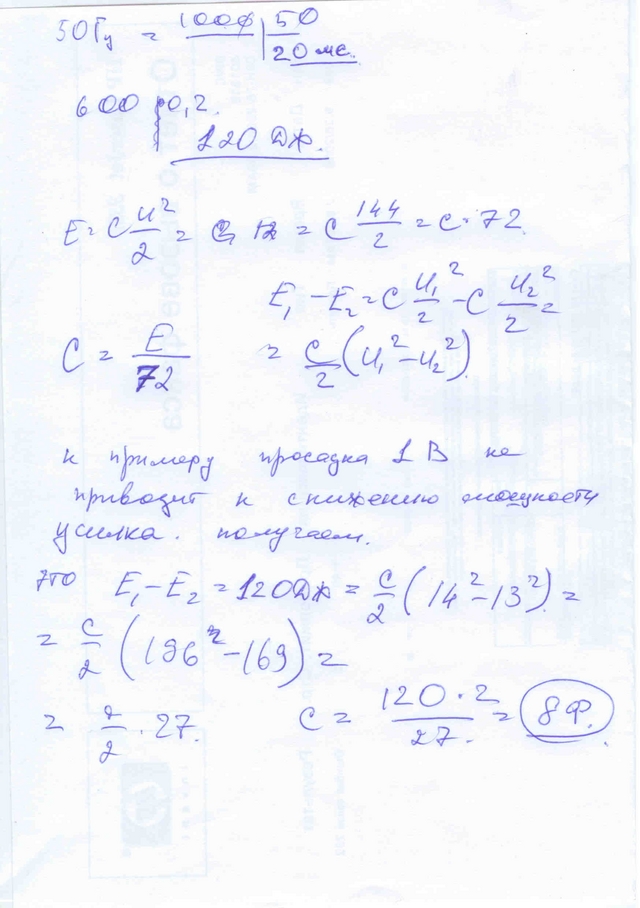 50 Гц = 1000 | 50
20 мс.
600 | 0,2.
120 Дж.
E = C U²/2 = = C 144/2 = C · 72
E₁ - E₂ = C U₁²/2 - C U₂²/2 =
C = E/72 = C/2 (U₁² - U₂²)
к примеру просадка 1 В не
приводит к снижению мощности
усилка. получаем.
что E₁ - E₂ = 120 Дж = C/2 (14² - 13²) =
= C/2 (196² - 169) =
= · 27. C = 120 · 2/27. = 8 Ф.